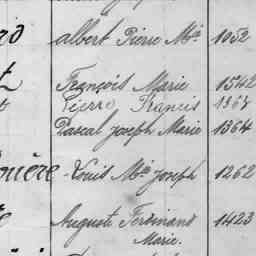 albert Pierre Mie 1052
François Marie 1542
Pierre Francis 1868
Pascal Joseph Marie 1364
Louis Mie Joseph 1262
Auguste Ferdinand 1423
Marie.